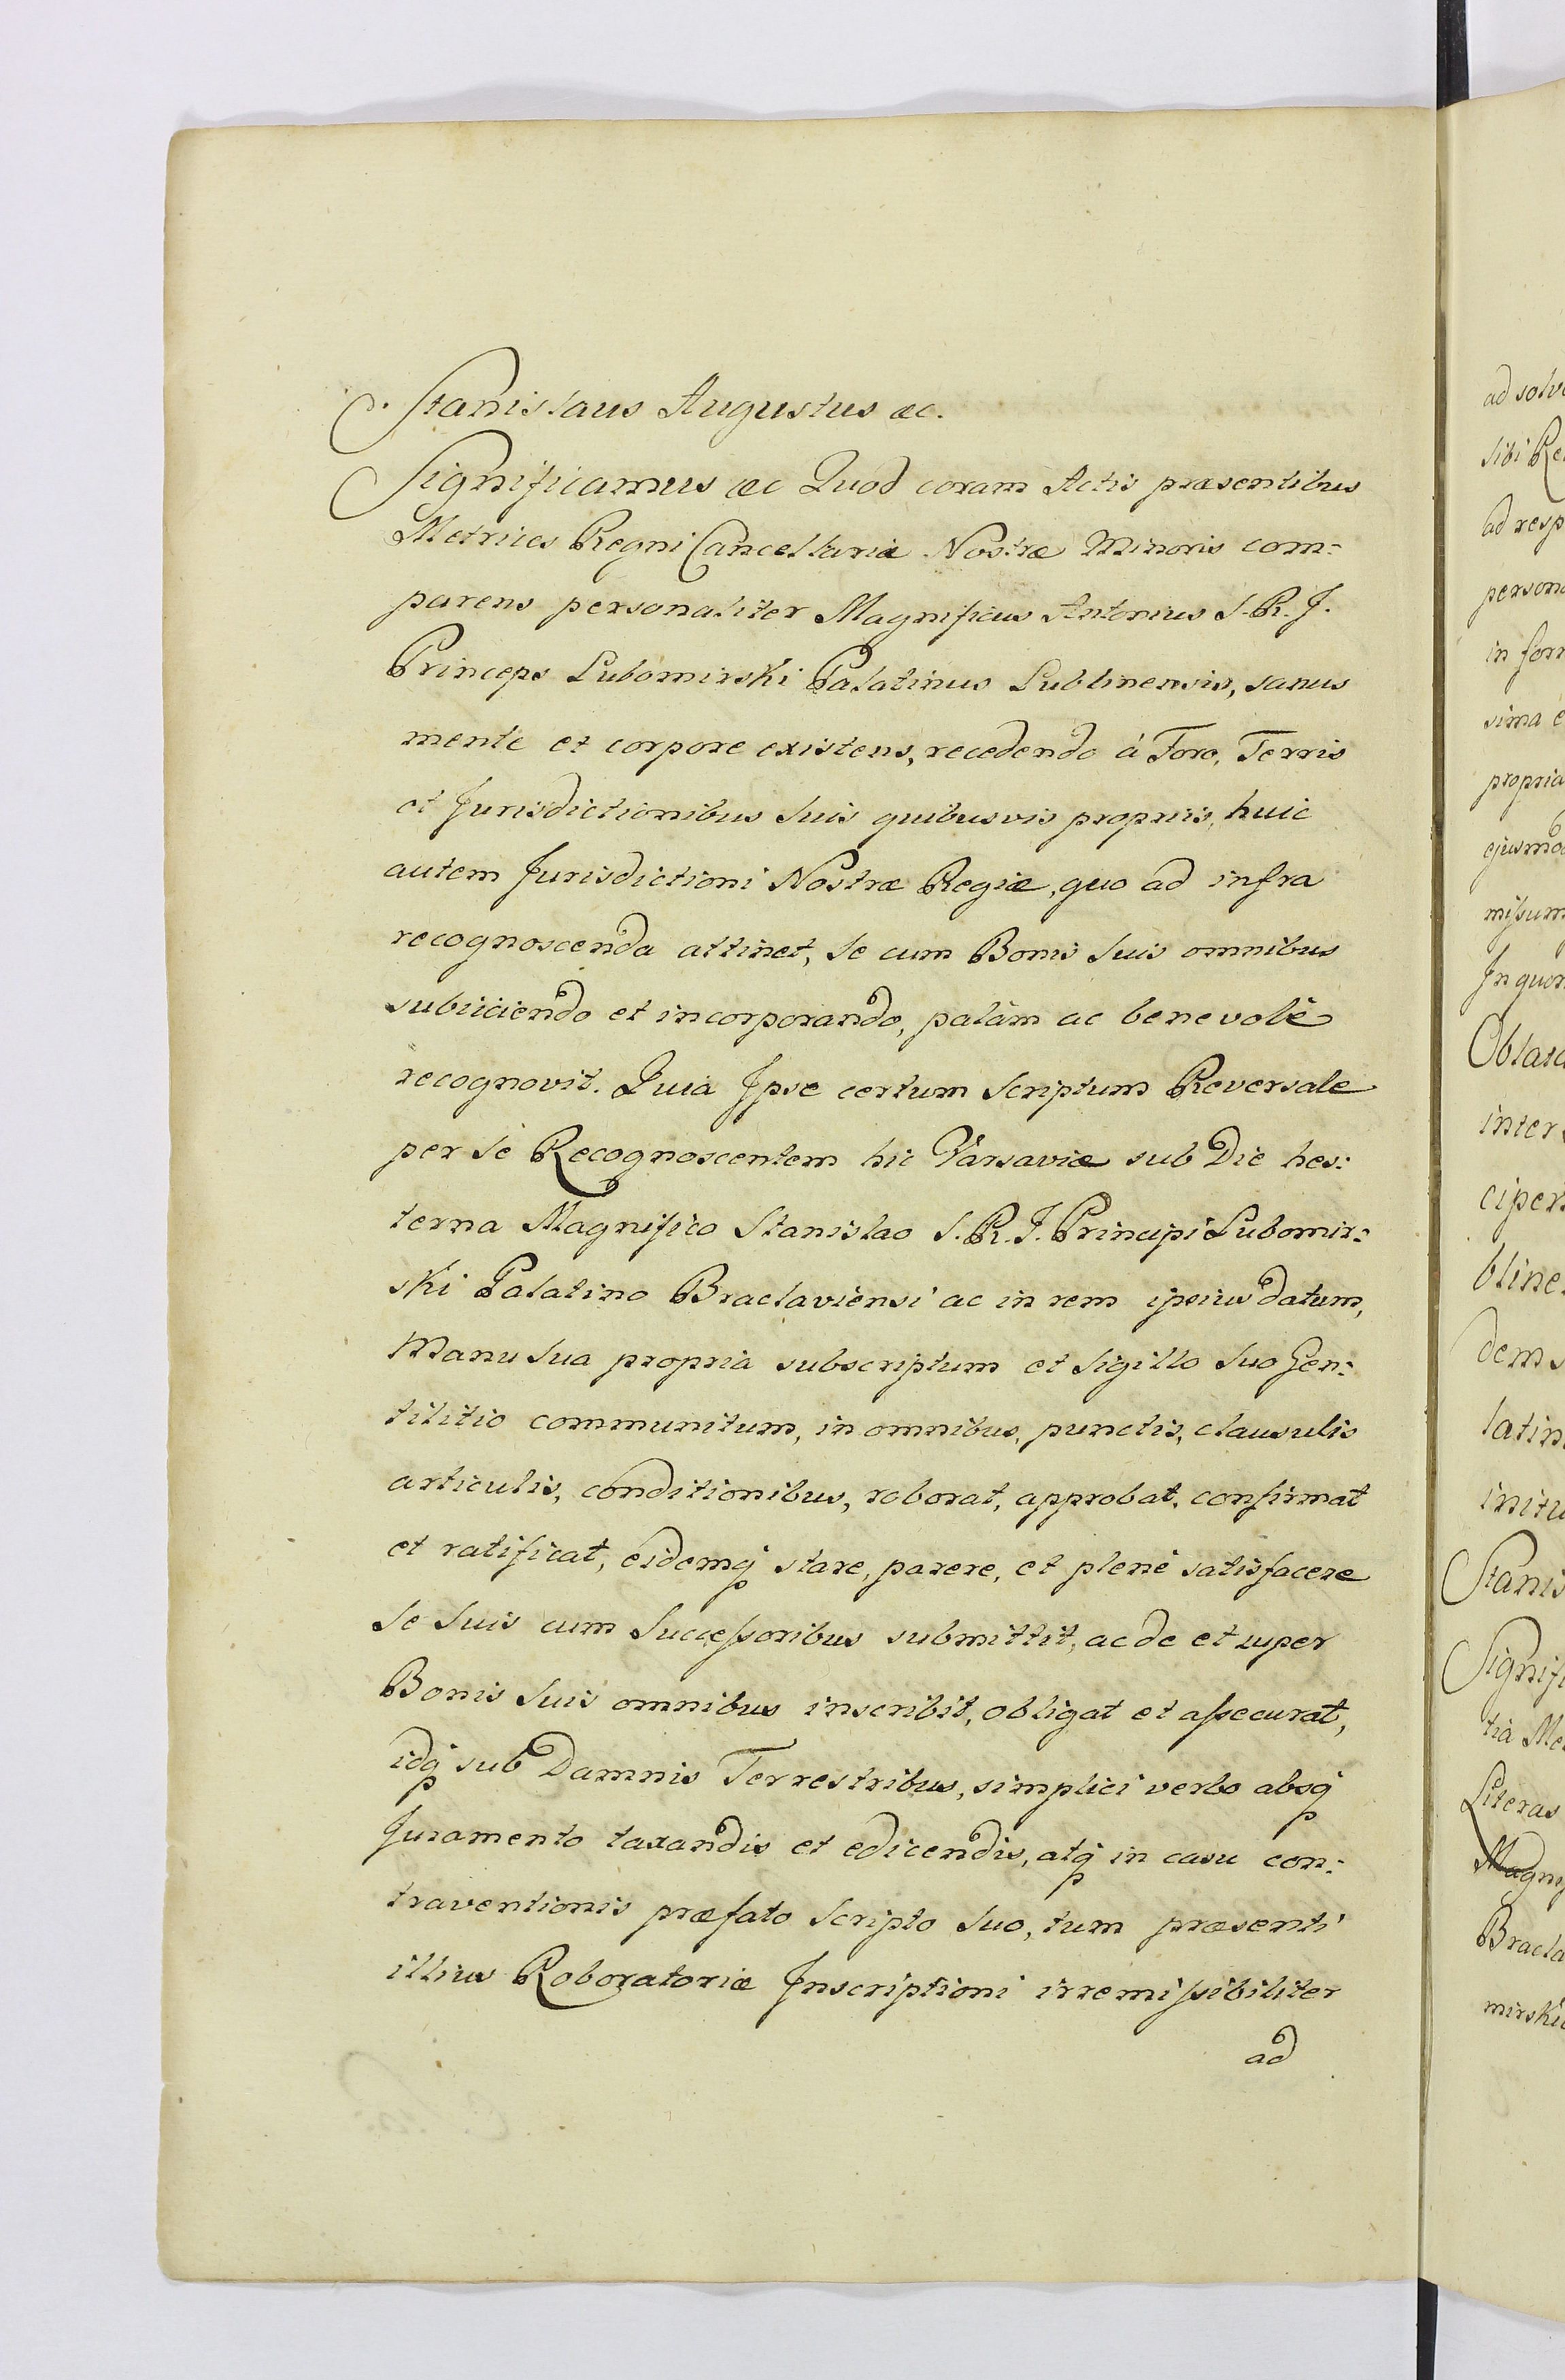 Stanislaus Augustus &c.
Significamus &c Quod coram Actis præsentibus
Metrices Regni Cancellariæ Nostræ Minoris com=
parens personaliter Magnificus Antonius S. R. J.
Princeps Lubomirski Palatinus Lublinensis, sanus
mente et corpore existens, recedendo à Foro, Terris
et Jurisdictionibus Suis quibusvis propriis, huic
autem Jurisdictioni Nostræ Regiæ, quo ad infra
recognoscenda attinet, Se cum Bonis Suis omnibus
subiiciendo et incorporando, palàm ac benevolè
recognovit. Quia Jpse certum Scriptum Reversale
per Se Recognoscentem hic Varsaviæ sub Die hes=
terna Magnifico Stanislao S. R. J. Principi Lubomir=
ski Palatino Braclaviensi ac in rem ipsius datum,
Manu Sua propria subscriptum et Sigillo Suo Gen=
tilitio communitum, in omnibus, punctis, clausulis
articulis, conditionibus, roborat, approbat, confirmat
et ratificat, eidemq stare, parere, et plenè satisfacere
Se Suis cum Successoribus submittit, ac de et super
Bonis Suis omnibus inscribit, obligat et assecurat,
idq sub Damnis Terrestribus, simplici verbo absq
Juramento taxandis et edicendis, atq in casu con=
traventionis præfato Scripto Suo, tum præsenti
illius Roboratoriæ Jnscriptioni irremissibiliter
ad
ad solv
sibi Re
ad resp
person
in for
sima e
propria
ejusmod
missum
Jn quor
Oblata
inter
ciper
bline
dem
latin
initu
Stanis
Signifi
tia Me
Literas
Magni
Bracla
mirski